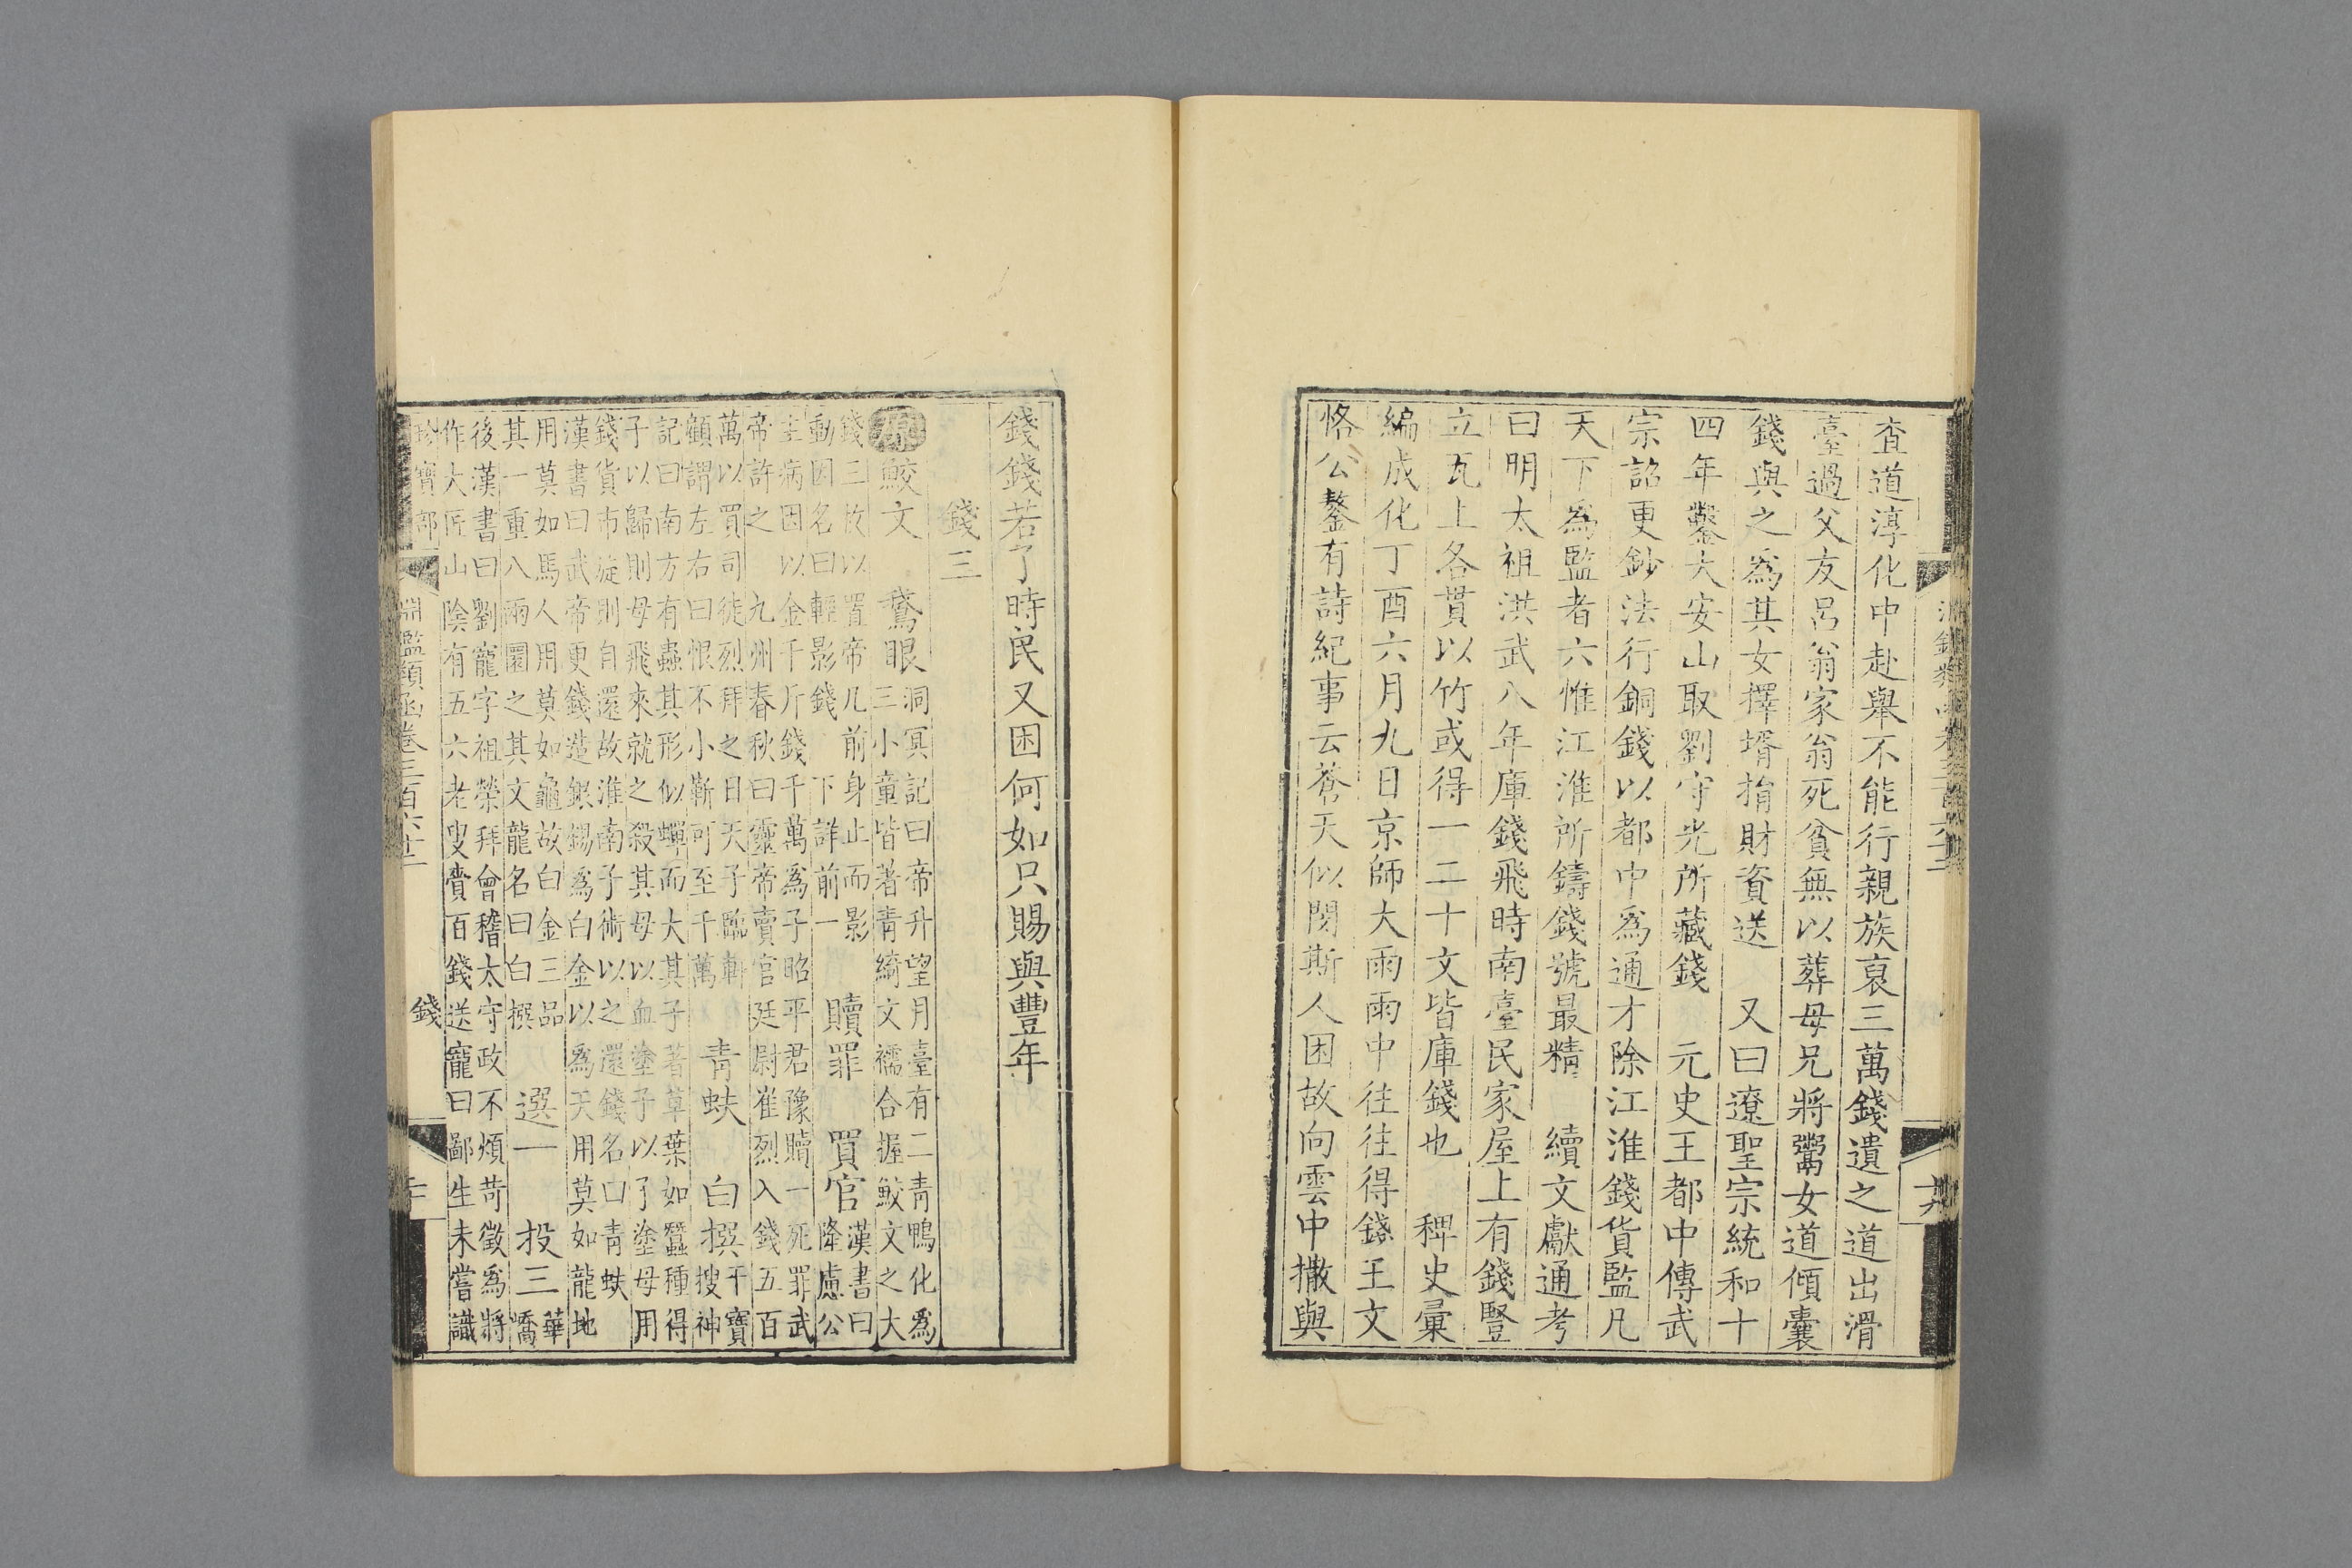 查道淳化中赴舉不能行親族裒三萬錢遺之道出滑
臺過父友呂翁家翁死貧無以葬母兄將鬻女道傾囊
錢與之為其女擇壻捐財資送　又曰遼聖宗統和十
四年鑿大安山取劉守光所藏錢　元史王都中傳武
宗詔更鈔法行銅錢以都中為通才除江淮錢貨監凡
天下為監者六惟江淮所鑄錢號最精　續文獻通考
曰明太祖洪武八年庫錢飛時南臺民家屋上有錢豎
立瓦上各貫以竹或得一二十文皆庫錢也　稗史彙
編成化丁酉六月九日京師大雨雨中往往得錢王文
恪公鏊有詩紀事云蒼天似閔斯人困故向雲中撒與
錢錢若了時民又困何如只賜與豐年
錢三
原鮫文　鵞眼
洞冥記曰帝升望月臺有二青鴨化為
三小童皆著青綺文襦合握鮫文之大
錢三枚以置帝几前身止而影
動因名曰輕影錢　下詳前一
贖罪　買官
漢書曰
隆慮公
主病因以金千斤錢千萬為子昭平君豫贖一死罪武
帝許之　九州春秋曰靈帝賣官廷尉崔烈入錢五百
萬以買司徒烈拜之日天子臨軒
顧謂左右曰恨不小靳可至千萬
青蚨　白撰
干寶
搜神
記曰南方有蟲其形似蟬而大其子著草葉如蠶種得
子以歸則母飛來就之殺其母以血塗子以子塗母用
錢貨市旋則自還故淮南子術以之還錢名曰青蚨
漢書曰武帝更錢造銀錫為白金以為天用莫如龍地
用莫如馬人用莫如龜故白金三品
其一重八兩圜之其文龍名曰白撰
選一　投三
華
嶠
後漢書曰劉寵字祖榮拜會稽太守政不煩苛徵為將
作大匠山陰有五六老叟賫百錢送寵曰鄙生未嘗識
珍寶部　淵鑑類函卷三百六十三　錢